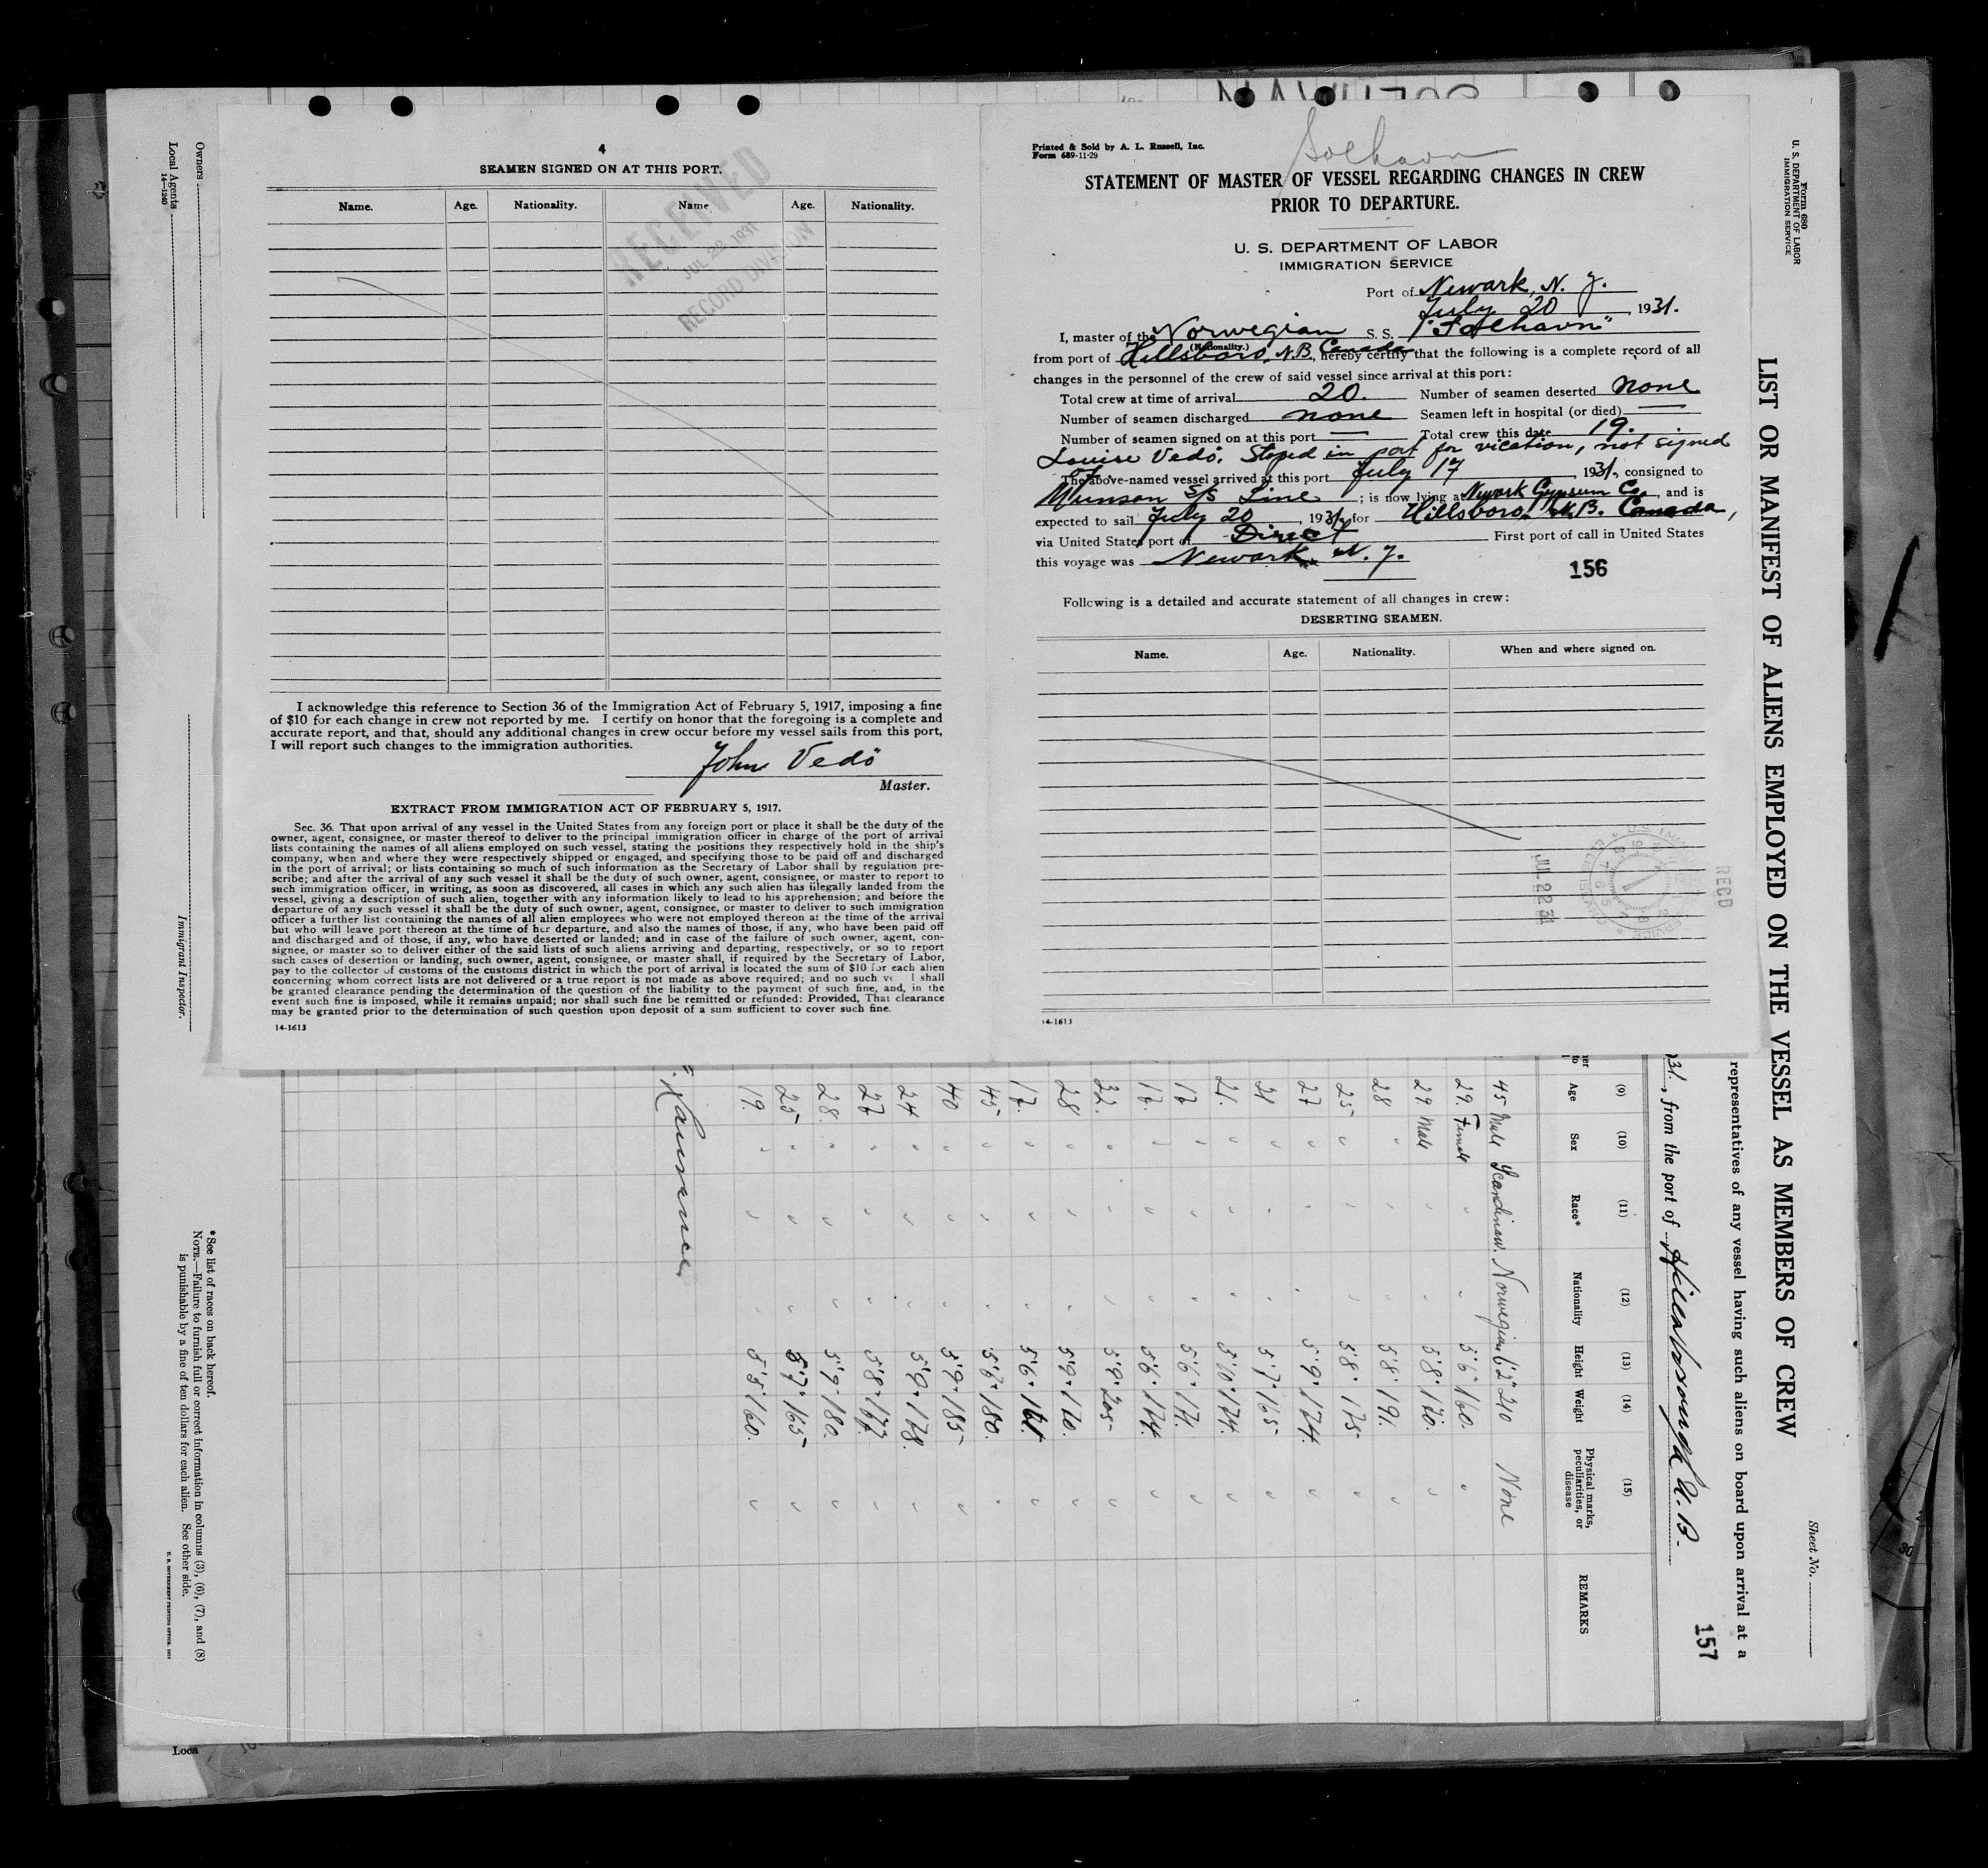 4
SEAMEN SIGNED ON AT THIS PORT.
Name. Age. Nationality. Name Age. Nationality.
RECEIVED
JUL 22 1931
RECORD DIVISION
I acknowledge this reference to Section 36 of the Immigration Act of February 5, 1917, imposing a fine
of $10 for each change in crew not reported by me. I certify on honor that the foregoing is a complete and
accurate report, and that, should any additional changes in crew occur before my vessel sails from this port,
I will report such changes to the immigration authorities.
John Vedö
Master.
EXTRACT FROM IMMIGRATION ACT OF FEBRUARY 5, 1917.
Sec. 36. That upon arrival of any vessel in the United States from any foreign port or place it shall be the duty of the
owner, agent, consignee, or master thereof to deliver to the principal immigration officer in charge of the port of arrival
lists containing the names of all aliens employed on such vessel, stating the positions they respectively hold in the ship's
company, when and where they were respectively shipped or engaged, and specifying those to be paid off and discharged
in the port of arrival; or lists containing so much of such information as the Secretary of Labor shall by regulation pre-
scribe; and after the arrival of any such vessel it shall be the duty of such owner, agent, consignee, or master to report to
such immigration officer, in writing, as soon as discovered, all cases in which any such alien has illegally landed from the
vessel, giving a description of such alien, together with any information likely to lead to his apprehension; and before the
departure of any such vessel it shall be the duty of such owner, agent, consignee, or master to deliver to such immigration
officer a further list containing the names of all alien employees who were not employed thereon at the time of the arrival
but who will leave port thereon at the time of her departure, and also the names of those, if any, who have been paid off
and discharged and of those, if any, who have deserted or landed; and in case of the failure of such owner, agent, con-
signee, or master so to deliver either of the said lists of such aliens arriving and departing, respectively, or so to report
such cases of desertion or landing, such owner, agent, consignee, or master shall, if required by the Secretary of Labor,
pay to the collector of customs of the customs district in which the port of arrival is located the sum of $10 for each alien
concerning whom correct lists are not delivered or a true report is not made as above required; and no such ve l shall
be granted clearance pending the determination of the question of the liability to the payment of such fine, and, in the
event such fine is imposed, while it remains unpaid; nor shall such fine be remitted or refunded: Provided, That clearance
may be granted prior to the determination of such question upon deposit of a sum sufficient to cover such fine.
14-1613
Solhavn
Printed & Sold by A. L. Russell, Inc.
Form 689-11-29
STATEMENT OF MASTER OF VESSEL REGARDING CHANGES IN CREW
PRIOR TO DEPARTURE.
U. S. DEPARTMENT OF LABOR
IMMIGRATION SERVICE
Port of Newark, N. J.
July 20, 1931.
I, master of the Norwegian S. S. "Solhavn"
(Nationality.)
from port of Hillsboro, N.B. Canada, hereby certify that the following is a complete record of all
changes in the personnel of the crew of said vessel since arrival at this port:
Total crew at time of arrival 20. Number of seamen deserted None
Number of seamen discharged none Seamen left in hospital (or died)
Number of seamen signed on at this port Total crew this date 19.
Louise Vedö. Stoped in port for vication, not signed
The above-named vessel arrived at this port July 17, 1931, consigned to
Munson S/S Line; is now lying at Newark Gypsum Co., and is
expected to sail July 20, 1931, for Hillsboro, N.B. Canada,
via United States port of Direct First port of call in United States
this voyage was Newark N. J.
156
Following is a detailed and accurate statement of all changes in crew:
DESERTING SEAMEN.
Name. Age. Nationality. When and where signed on.
REC'D
JUL 22 31
14-1613
Form 689
U. S. DEPARTMENT OF LABOR
IMMIGRATION SERVICE
LIST OR MANIFEST OF ALIENS EMPLOYED ON THE VESSEL AS MEMBERS OF CREW
Sheet No.
representatives of any vessel having such aliens on board upon arrival at a
31, from the port of Hillsborough N. B.
157
(9) (10) (11) (12) (13) (14) (15)
Age Sex Race* Nationality Height Weight Physical marks, peculiarities, or disease REMARKS
45 Male Scandinav. Norwegian 6'2" 240 None
29. Female " " 5'6" 160. "
29 Male " " 5'8" 170. "
28 " " " 5'8" 191. "
25 " " " 5'8" 175 "
27 " " " 5'9" 174. "
21 " " " 5'7" 165 "
21. " " " 5'10" 174. "
17 " " " 5'6" 171. "
17. " " " 5'6" 174. "
32. " " " 5'9" 205 "
28 " " " 5'9" 170. "
17. " " " 5'6" 161. "
45 " " " 5'6" 180. "
40 " " " 5'9" 185 "
24 " " " 5'9" 178. "
26 " " " 5'8" 167. "
28. " " " 5'9" 180. "
25 " " " 5'7" 165 "
19. " " " 5'5" 160. "
*See list of races on back hereof.
NOTE.—Failure to furnish full or correct information in columns (3), (6), (7), and (8)
is punishable by a fine of ten dollars for each alien. See other side.
U. S. GOVERNMENT PRINTING OFFICE
Owners
Local Agents
14-1240
Immigrant Inspector.
Loca
30